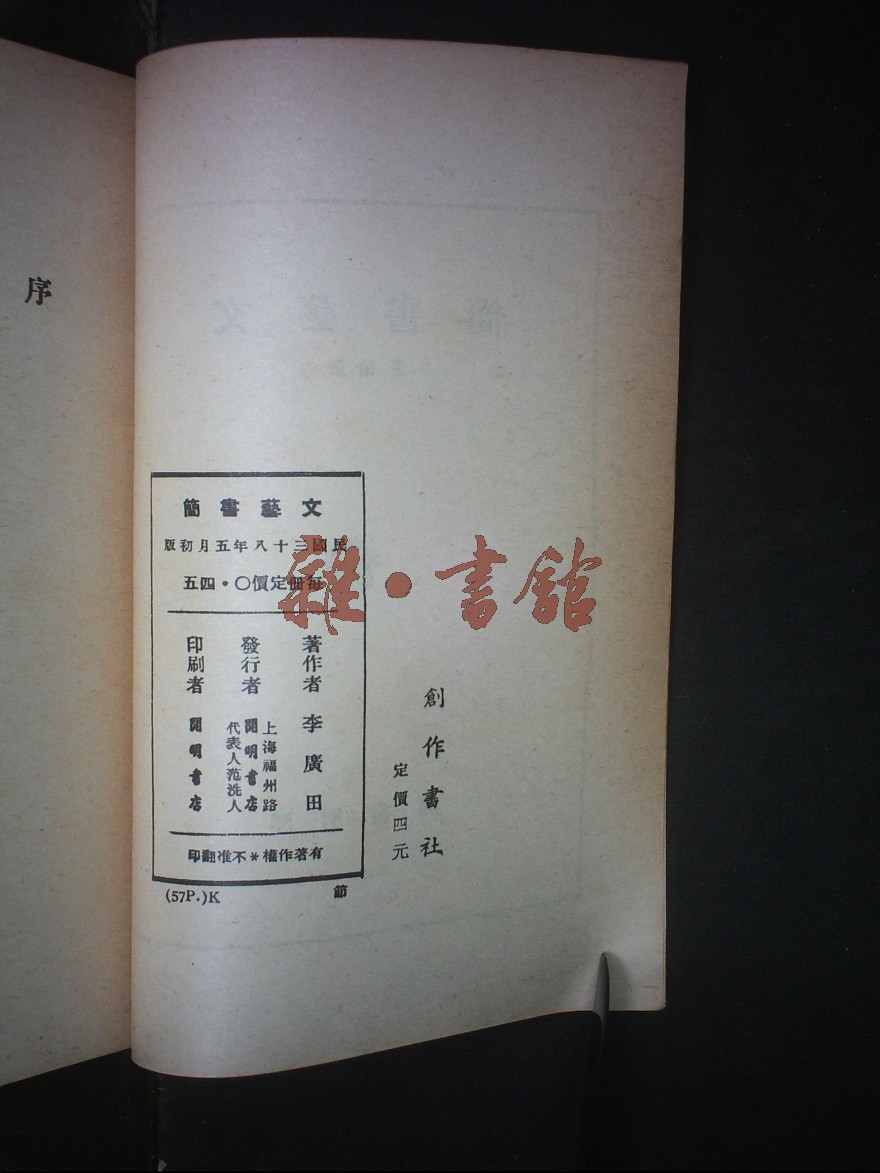 序
文藝書簡
民國三十八年五月初版
每册定價〇・四五
著作者 李廣田
發行者 上海福州路
開明書店
代表人范洗人
印刷者 開明書店
有著作權＊不准翻印
(57P.)K 節
創作書社
定價四元
雜・書館